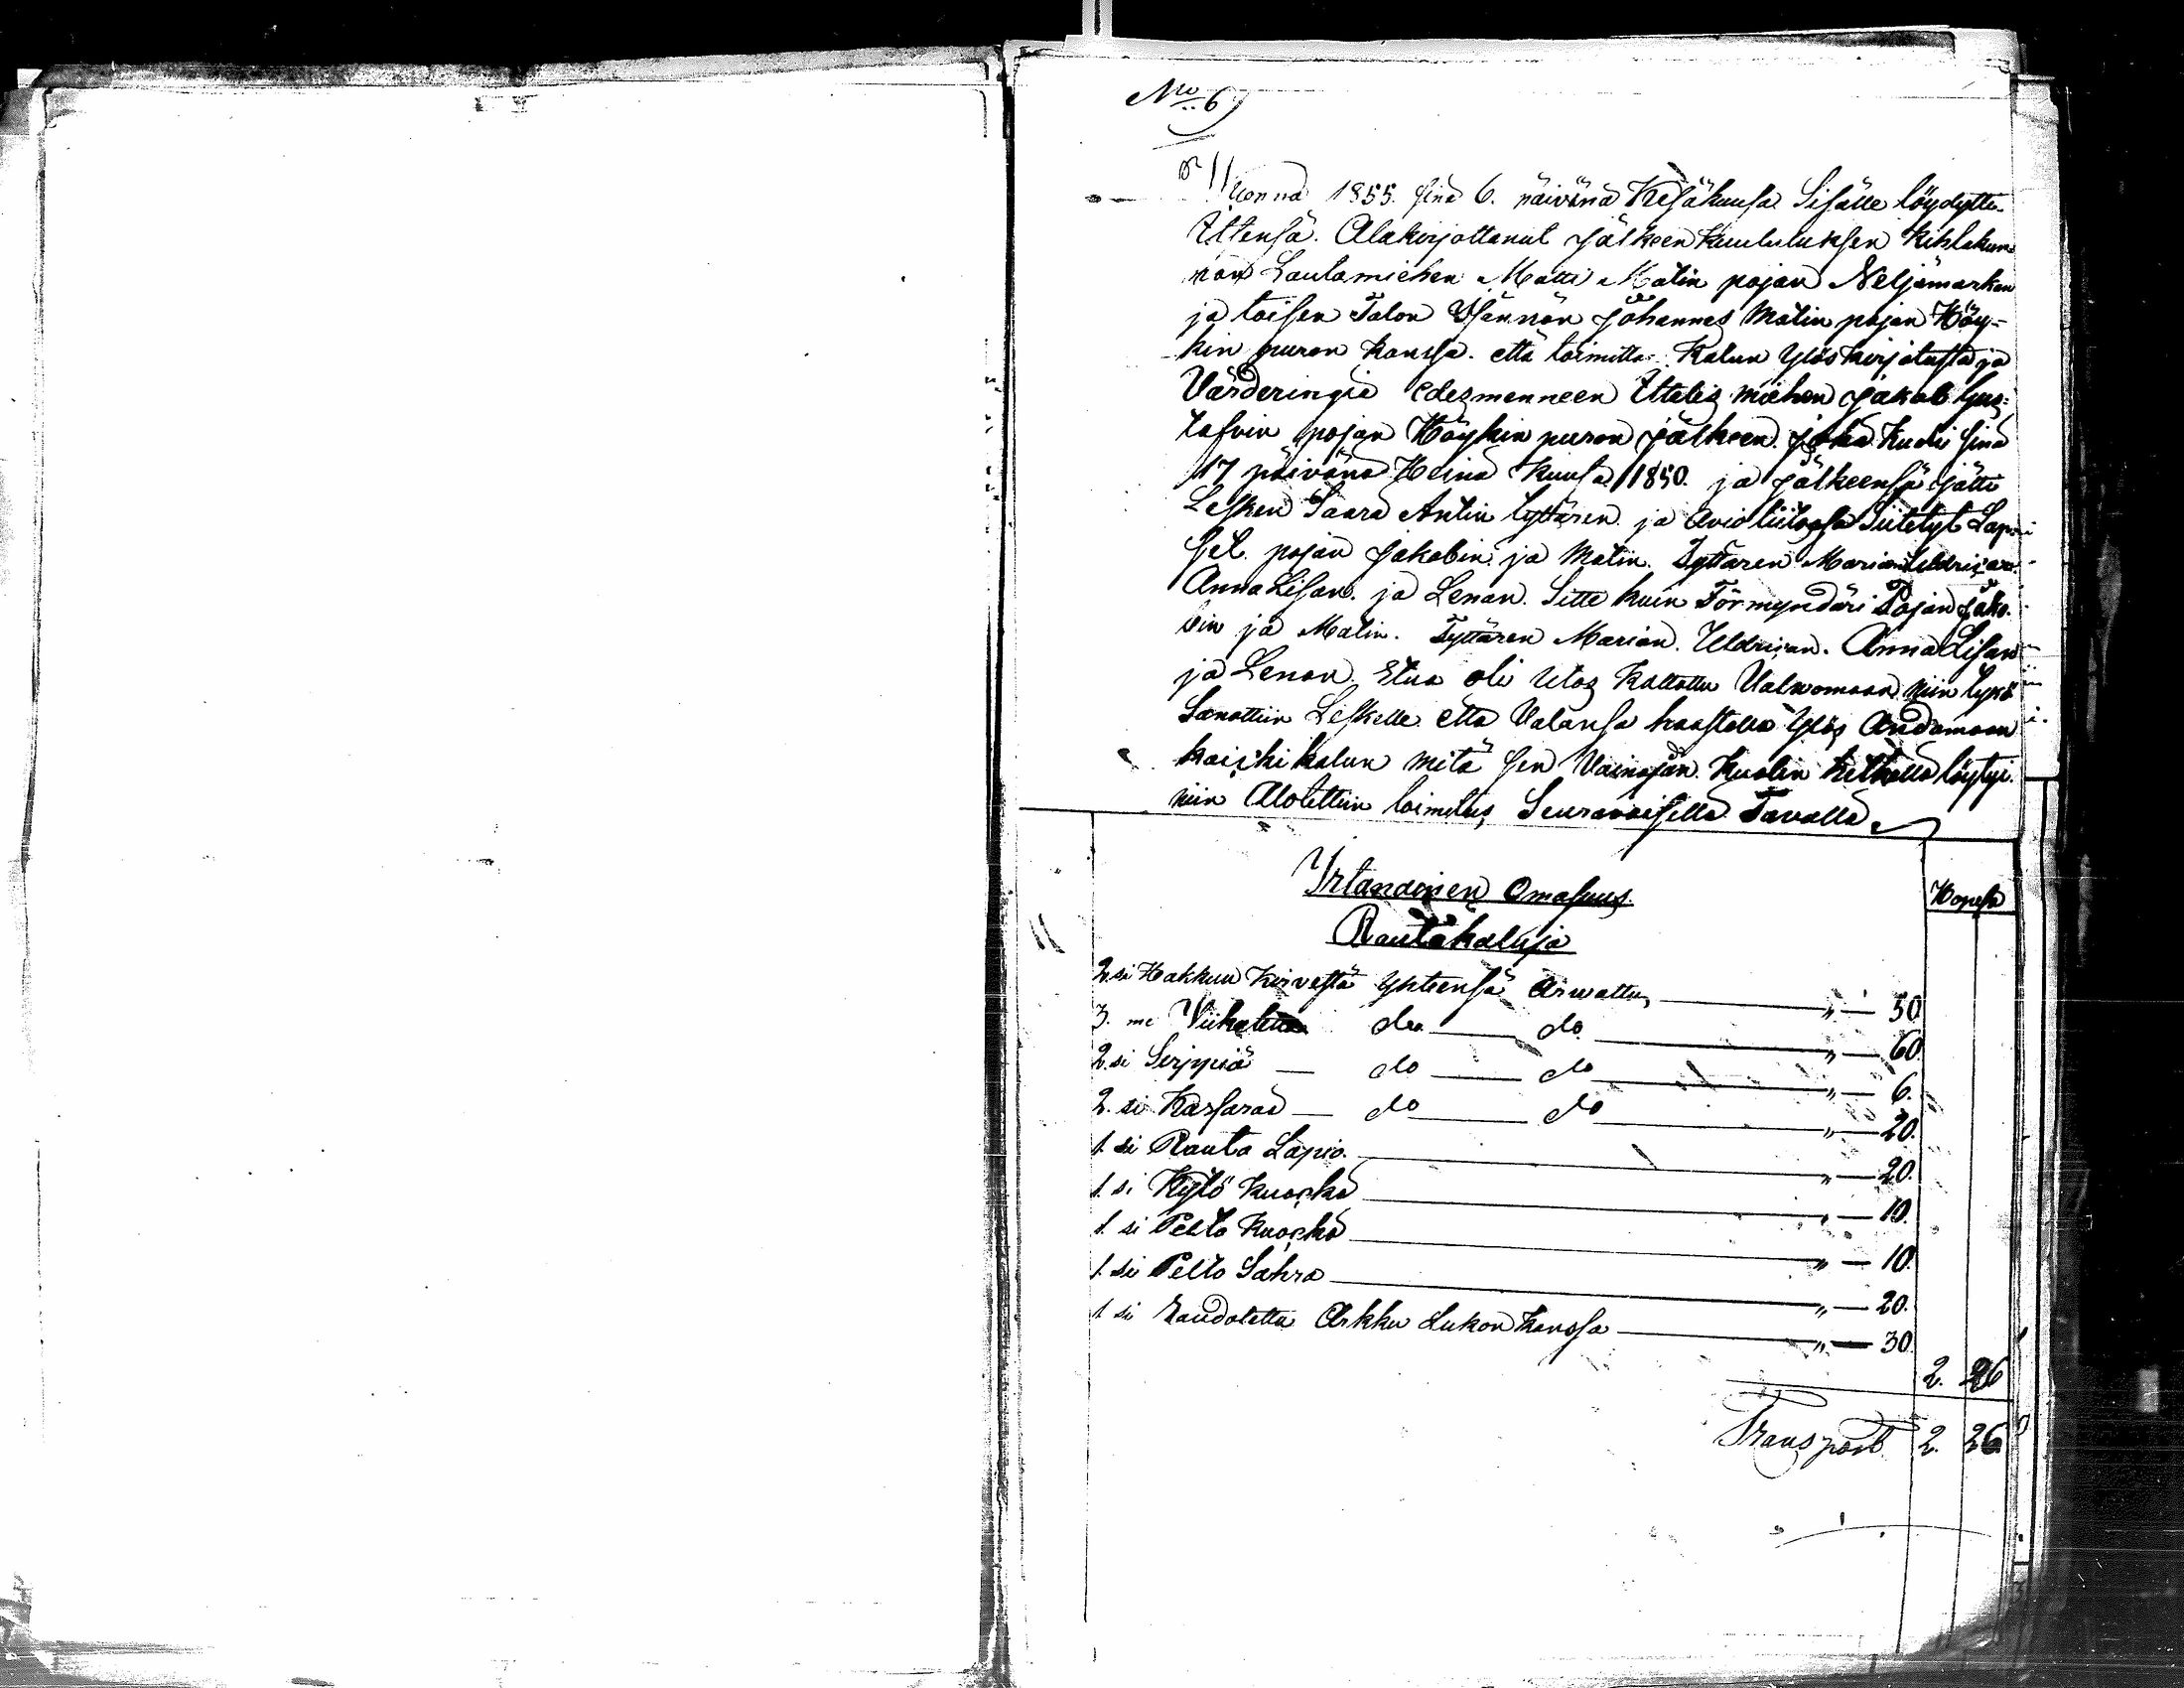 No 6
Vuonna 1855. sinä 6. päivänä Kesäkuusa Sisälle löydytti
Ittensä. Alakirjottanut jälkeen kuulutuksen kihlakun
nan Lautamiehen Matti Matin pojan Neljämarkan
ja toisen Talon Isännön Johannes Matin pojan Köy-
kin puron kanssa. että toimitta Kalun Ylöskirjotusta ja
Värderingiä edesmenneen Ittelis miehen Jakob Gus-
tafvin pojan Köykin puron jälkeen. joka kuoli sinä
17 päivänä Heinä kuusa 1850. ja jälkeensä jätti
Lesken Saara Antin tyttären. ja Avioliitossa Siitetyt Lap-
set. pojan Jakobin. ja Matin. Tyttären Marian Uldrican.
Anna Lisan. ja Lenan. Sitte kuin Förmyndäri Pojan Jako-
bin ja Matin. Tyttären Marian. Uldrican. Anna Lisan
ja Lenan. Etua oli Ulos kattottu Valvomaan niin tykö
Sanottiin Leskelle että Valansa haastella Ylös Andamaan
kaicki kalun mitä sen Vainajan. Kuolin hetkellä löytyi.
niin Alotettiin toimitus, Seuravaisella Tavalla
Irtandinen Omasuus.
Hopesa
Rautakaluja
2.si Hakkuu Kirvestä Yhteensä Arwattu, " — 50
3. me Viikatetta do — do. " — 60.
2.si Sirppiä — do — do " — 6.
2. si Karsaraa — do — do " — 20.
1. si Rauta Lapio. " — 20.
1. si Kytö kuocka " — 10.
1. si Pelto Kuocka " — 10.
1. si Pelto Sahra " — 20.
1 si Raudotettu Arkku Lukon kanssa " — 30.
2. 26
Transport 2. 26